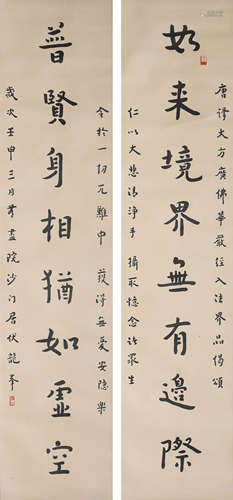 如来境界無有邊際
唐譯大方廣佛華嚴經入法界品偈頌
仁以大悲清淨手 攝取憶念諸衆生
普賢身相猶如虛空
令於一切厄難中 獲得無憂安隱樂
歲次壬申三月
沙门居伏龍